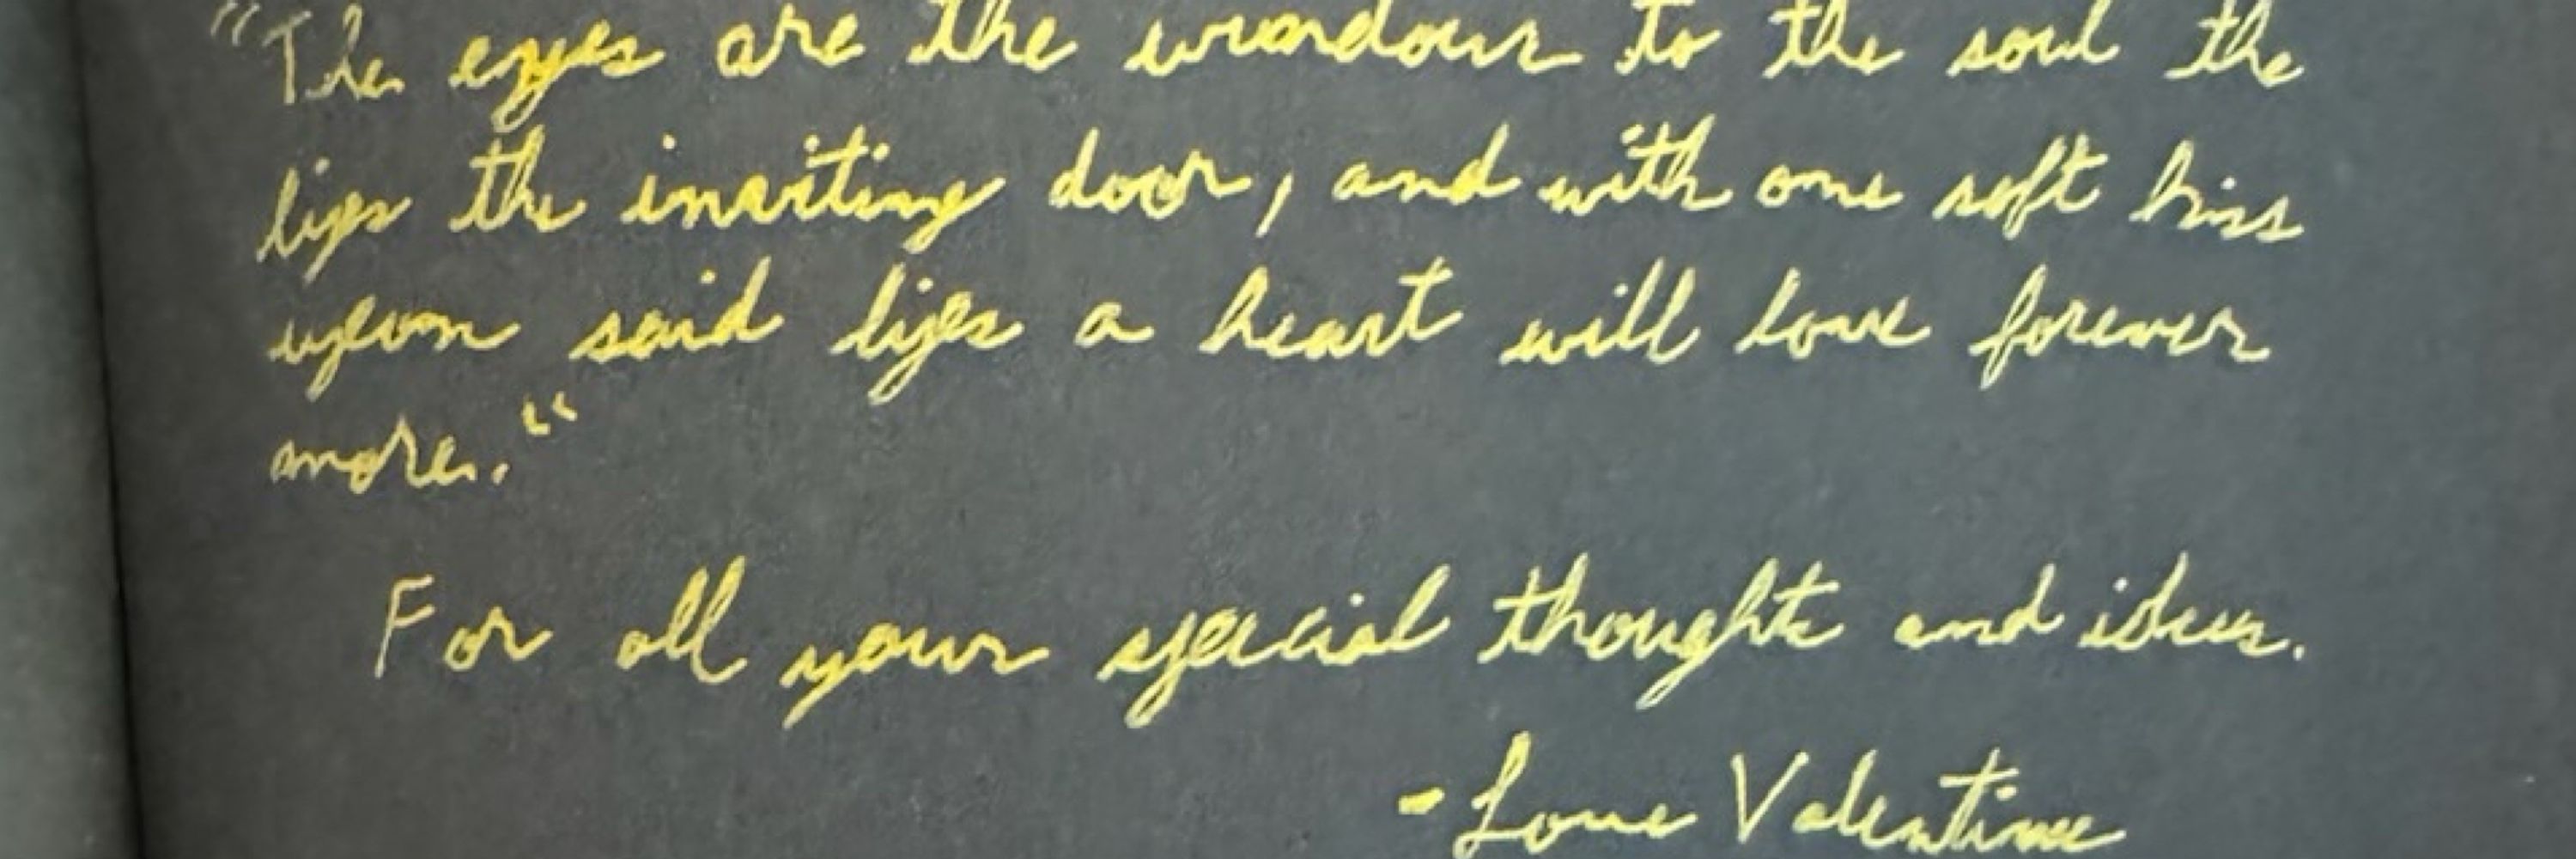 "The eyes are the windows to the soul the
lips the inviting door, and with one soft kiss
upon said lips a heart will love forever
more."
For all your special thoughts and ideas.
- Love Valentine